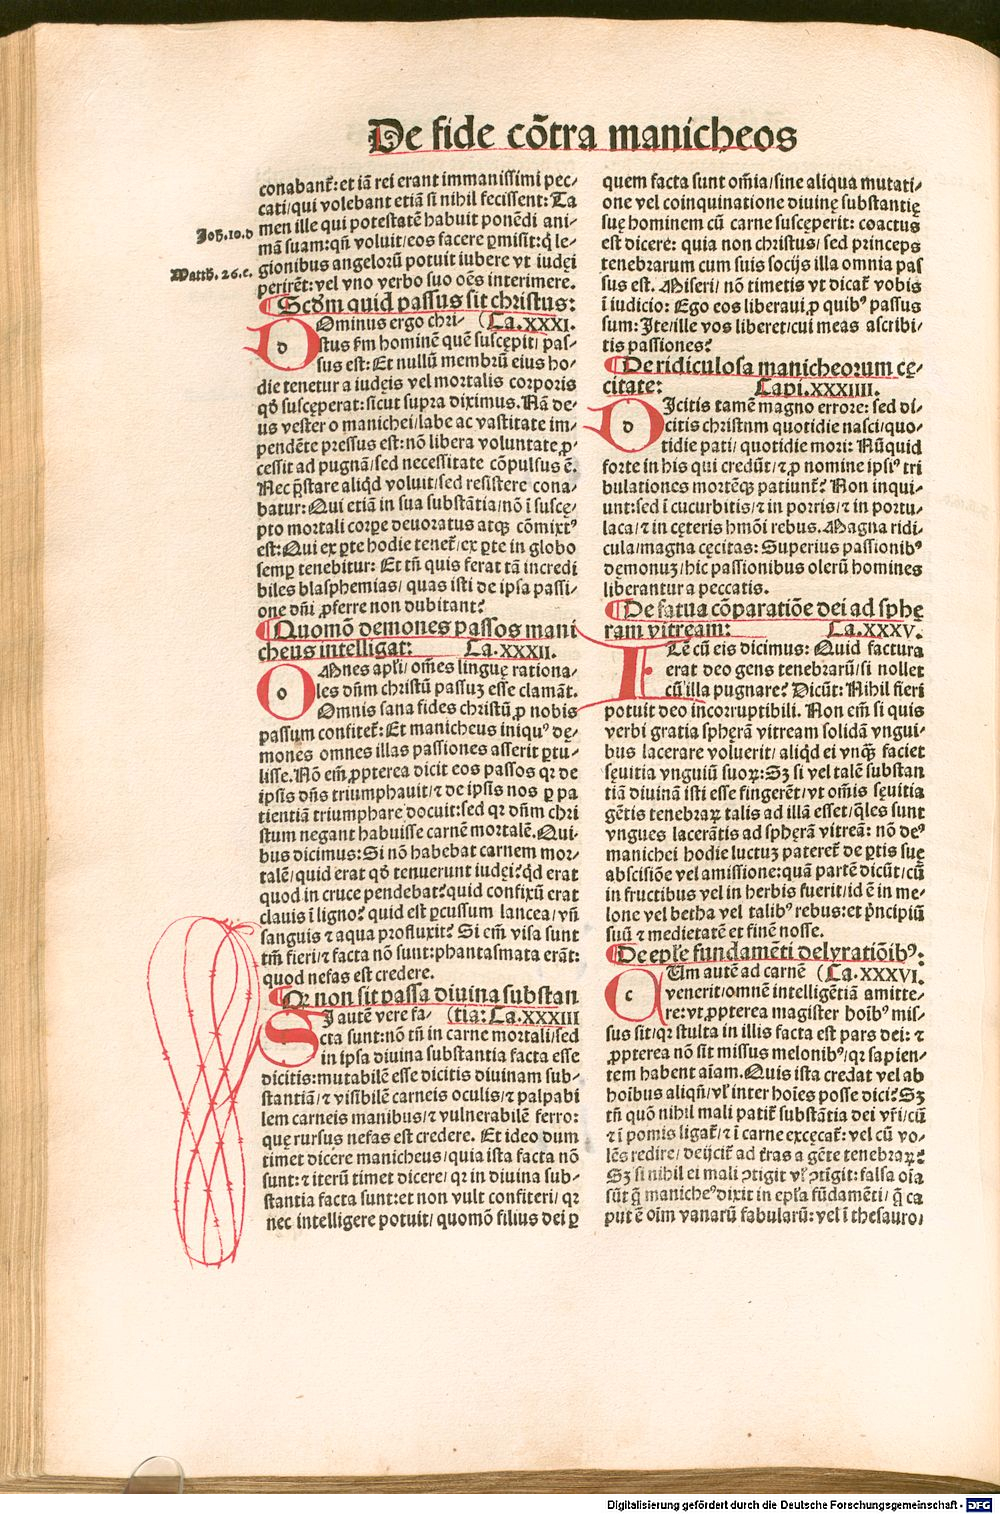 De fide cõtra manicheos
conabant᷑: et iã rei erant immanissimi pec⸗
cati/ qui volebant etiã si nihil fecissent: Ta
men ille qui potestatẽ habuit ponẽdi ani⸗
Joh̃.10.d
mã suam: qñ voluit/ eos facere ꝑmisit: q̃ le⸗
Matth̃.26.e.
gionibus angeloꝝ potuit iubere vt iudęi
perirẽt: vel vno verbo suo oẽs interimere.
¶ Scd̃m quid passus sit christus:
Ominus ergo chri⸗ (Ca.XXXI.
d
stus ẜm hominẽ quẽ suscępit/ pas⸗
sus est: Et nullũ membrũ eius ho⸗
die tenetur a iudęis vel mortalis corporis
qd̃ suscęperat: sicut supra diximus. Nã de⸗
us vester o manichei/ labe ac vastitate im⸗
pendẽte pressus est: nõ libera voluntate ꝓ⸗
cessit ad pugnã/ sed necessitate cõpulsus ẽ.
Nec p̃stare aliq̃d voluit/ sed resistere cona⸗
batur: Qui etiã in sua substãtia/ nõ ĩ suscę⸗
pto mortali corꝑe deuoratus atqꝫ cõmixtꝰ
est: Qui ex ꝑte hodie tenet᷑/ ex ꝑte in globo
semꝑ tenebitur: Et tñ quis ferat tã incredi
biles blasphemias/ quas isti de ipsa passi⸗
one dñi ꝓferre non dubitant?
¶ Quomõ demones passos mani
cheus intelligat: Ca.XXXII.
o
Mnes apl̃i/ om̃es linguę rationa⸗
les dñm christũ passuꝫ esse clamãt.
Omnis sana fides christũ ꝓ nobis
passum confitet᷑: Et manicheus iniquꝰ dę⸗
mones omnes illas passiones asserit ꝑtu⸗
lisse. Nõ em̃ ꝓpterea dicit eos passos qꝛ de
ipsis dñs triumphauit/ ⁊ de ipsis nos ꝑ pa
tientiã triumphare docuit: sed qꝛ dñm chri
stum negant habuisse carnẽ mortalẽ. Qui⸗
bus dicimus: Si nõ habebat carnem mor⸗
talẽ/ quid erat qd̃ tenuerunt iudęi? qd̃ erat
quod in cruce pendebat? quid confixũ erat
clauis ĩ ligno? quid est ꝑcussum lancea/ vñ
sanguis ⁊ aqua profluxit? Si em̃ visa sunt
tm̃ fieri/ ⁊ facta nõ sunt: phantasmata erãt:
quod nefas est credere.
¶ Qꝛ non sit passa diuina substan
I autẽ vere fa⸗ (tia: Ca.XXXIII
cta sunt: nõ tñ in carne mortali/ sed
in ipsa diuina substantia facta esse
dicitis: mutabilẽ esse dicitis diuinam sub⸗
stantiã/ ⁊ visibilẽ carneis oculis/ ⁊ palpabi
lem carneis manibus/ ⁊ vulnerabilẽ ferro:
quę rursus nefas est credere. Et ideo dum
timet dicere manicheus/ quia ista facta nõ
sunt: ⁊ iterũ timet dicere/ qꝛ in diuina sub⸗
stantia facta sunt: et non vult confiteri/ qꝛ
nec intelligere potuit/ quomõ filius dei ꝑ
quem facta sunt om̃ia/ sine aliqua mutati⸗
one vel coinquinatione diuinę substantię
suę hominem cũ carne suscęperit: coactus
est dicere: quia non christus/ sed princeps
tenebrarum cum suis socijs illa omnia pas
sus est. Miseri/ nõ timetis vt dicat᷑ vobis
ĩ iudicio: Ego eos liberaui ꝓ quibꝰ passus
sum: Ite/ ille vos liberet/ cui meas ascribi⸗
tis passiones?
¶ De ridiculosa manicheorum cę⸗
citate: Capi.XXXIIII.
d
Icitis tamẽ magno errore: sed di⸗
citis christum quotidie nasci/ quo⸗
tidie pati/ quotidie mori: Nũquid
forte in his qui credũt/ ⁊ ꝓ nomine ipsiꝰ tri
bulationes mortẽqꝫ patiunt᷑? Non inqui⸗
unt: sed ĩ cucurbitis/ ⁊ in porris/ ⁊ in portu⸗
laca/ ⁊ in cęteris hmõi rebus. Magna ridi⸗
cula/ magna cęcitas: Superius passionibꝰ
dęmonuꝫ/ hic passionibus olerũ homines
liberantur a peccatis.
¶ De fatua cõparatiõe dei ad sphę
ram vitream: Ca.XXXV.
Tẽ cũ eis dicimus: Quid factura
erat deo gens tenebrarũ/ si nollet
cũ illa pugnare? Dicũt: Nihil fieri
potuit deo incorruptibili. Non em̃ si quis
verbi gratia sphęrã vitream solidã vngui⸗
bus lacerare voluerit/ aliqd̃ ei vnqꝫ̃ faciet
sęuitia vnguiũ suoꝝ: Sꝫ si vel talẽ substan
tiã diuinã isti esse fingerẽt/ vt om̃is sęuitia
gẽtis tenebraꝝ talis ad illã esset/ q̃les sunt
vngues lacerãtis ad sphęrã vitreã: nõ deꝰ
manichei hodie luctuꝫ pateret᷑ de ꝑtis suę
abscisiõe vel amissione: quã partẽ dicũt/ cũ
in fructibus vel in herbis fuerit/ id ẽ in me⸗
lone vel betha vel talibꝰ rebus: et p̃ncipiũ
suũ ⁊ medietatẽ et finẽ nosse.
¶ De epl̃e fundamẽti delyratiõibꝰ:
c
Um autẽ ad carnẽ (Ca.XXXVI.
venerit/ omnẽ intelligẽtiã amitte⸗
re: vt ꝓpterea magister hoĩbꝰ mis⸗
sus sit/ qꝛ stulta in illis facta est pars dei: ⁊
ꝓpterea nõ sit missus melonibꝰ/ qꝛ sapien⸗
tem habent aĩam. Quis ista credat vel ab
hoĩbus aliqñ/ vl̃ inter hoĩes posse dici? Sꝫ
tñ quõ nihil mali patit᷑ substãtia dei vr̃i/ cũ
⁊ ĩ pomis ligat᷑/ ⁊ ĩ carne excęcat᷑: vel cũ vo⸗
lẽs redire/ deijcit᷑ ad t̃ras a gẽte tenebraꝝ?
Sꝫ si nihil ei mali ꝯtigit vl̃ ꝯtĩgit: falsa oĩa
sũt q̃ manicheꝰ dixit in epl̃a fũdamẽti/ q̃ ca
put ẽ oĩm vanarũ fabularũ: vel ĩ thesauro/
Digitalisierung gefördert durch die Deutsche Forschungsgemeinschaft - DFG